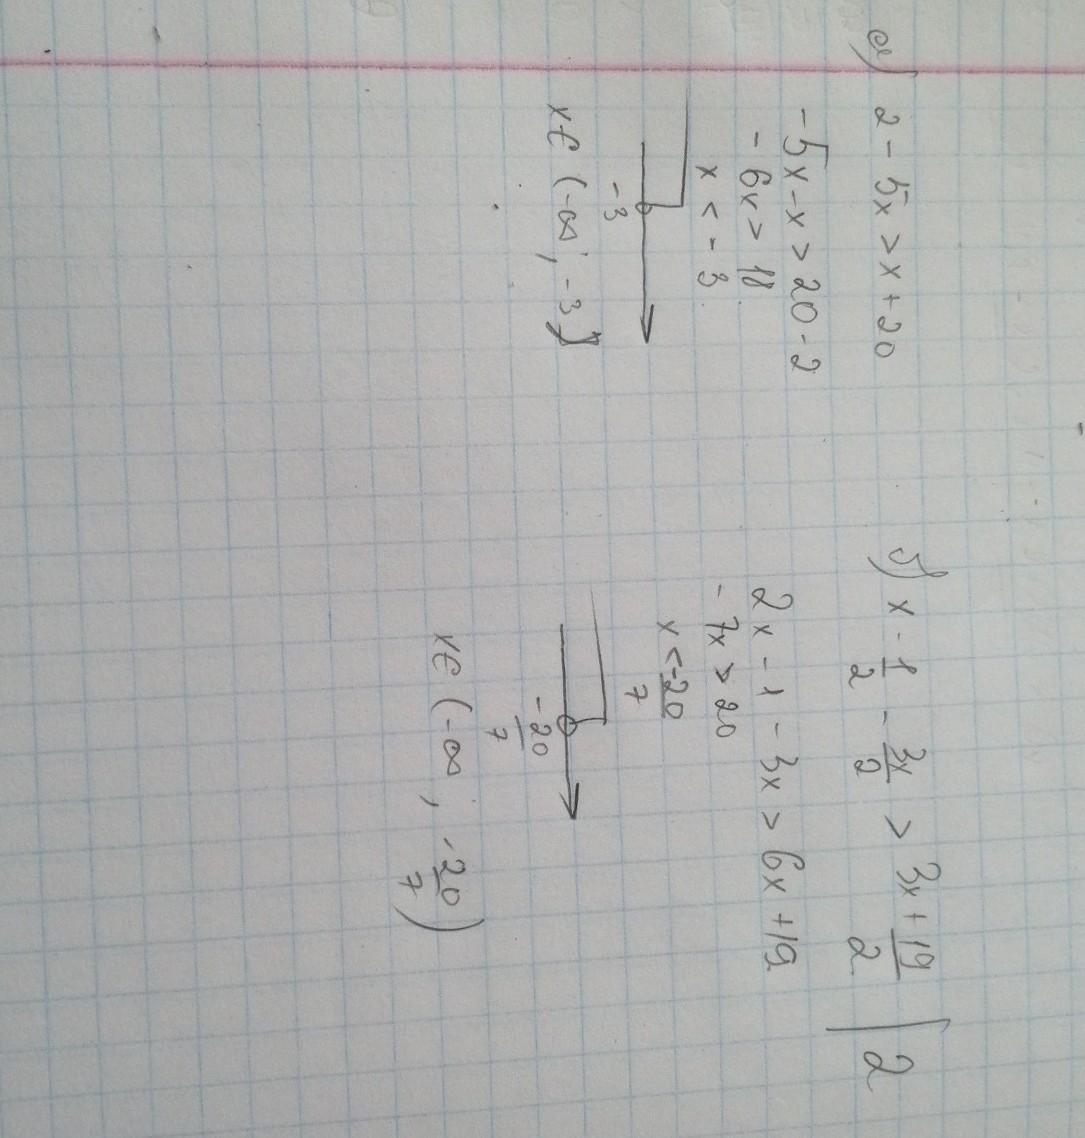 а) 2 - 5x > x + 20
-5x - x > 20 - 2
-6x > 18
x < -3
-3
x ∈ (-∞; -3)
б) x - 1/2 - 3x/2 > 3x + 19/2 | 2
2x - 1 - 3x > 6x + 19
-7x > 20
x < -20/7
-20/7
x ∈ (-∞; -20/7)